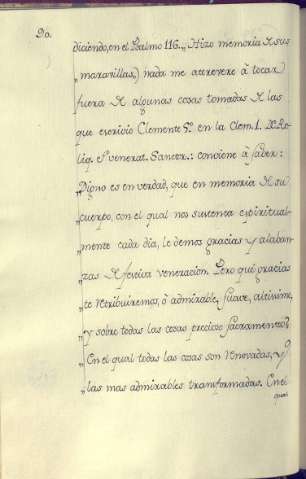 90.
diciendo, en el Psalmo 116. „Hizo memoria de sus
„maravillas,) nada me atreverè à tocar
fuera de algunas cosas tomadas de las
que escrivio Clemente 5º. en la Clem. 1. De Re-
liq. et venerat. Sanctor.: conviene à saber:
„Digno es en verdad, que en memoria de su
„cuerpo, con el qual nos sustenta espiritual-
„mente cada dia, le demos gracias y alaban-
„zas de festiva veneracion. Pero què gracias
„te retribuiremos, ò admirable, suave, altisimo,
„y sobre todas las cosas precioso Sacramento?
„En el qual todas las cosas son renovadas, y
„las mas admirables transformadas. En el
qual